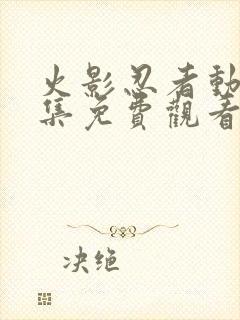 火影忍者動
集免費觀看
决绝